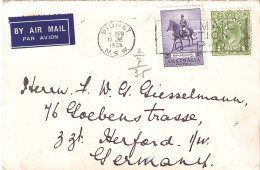 BY AIR MAIL
PAR AVION
SYDNEY
N.S.W.
AUSTRALIA
Herrn F. W. G. Giesselmann,
76 Goebenstrasse,
z.zt. Herford. i/w.
Germany.